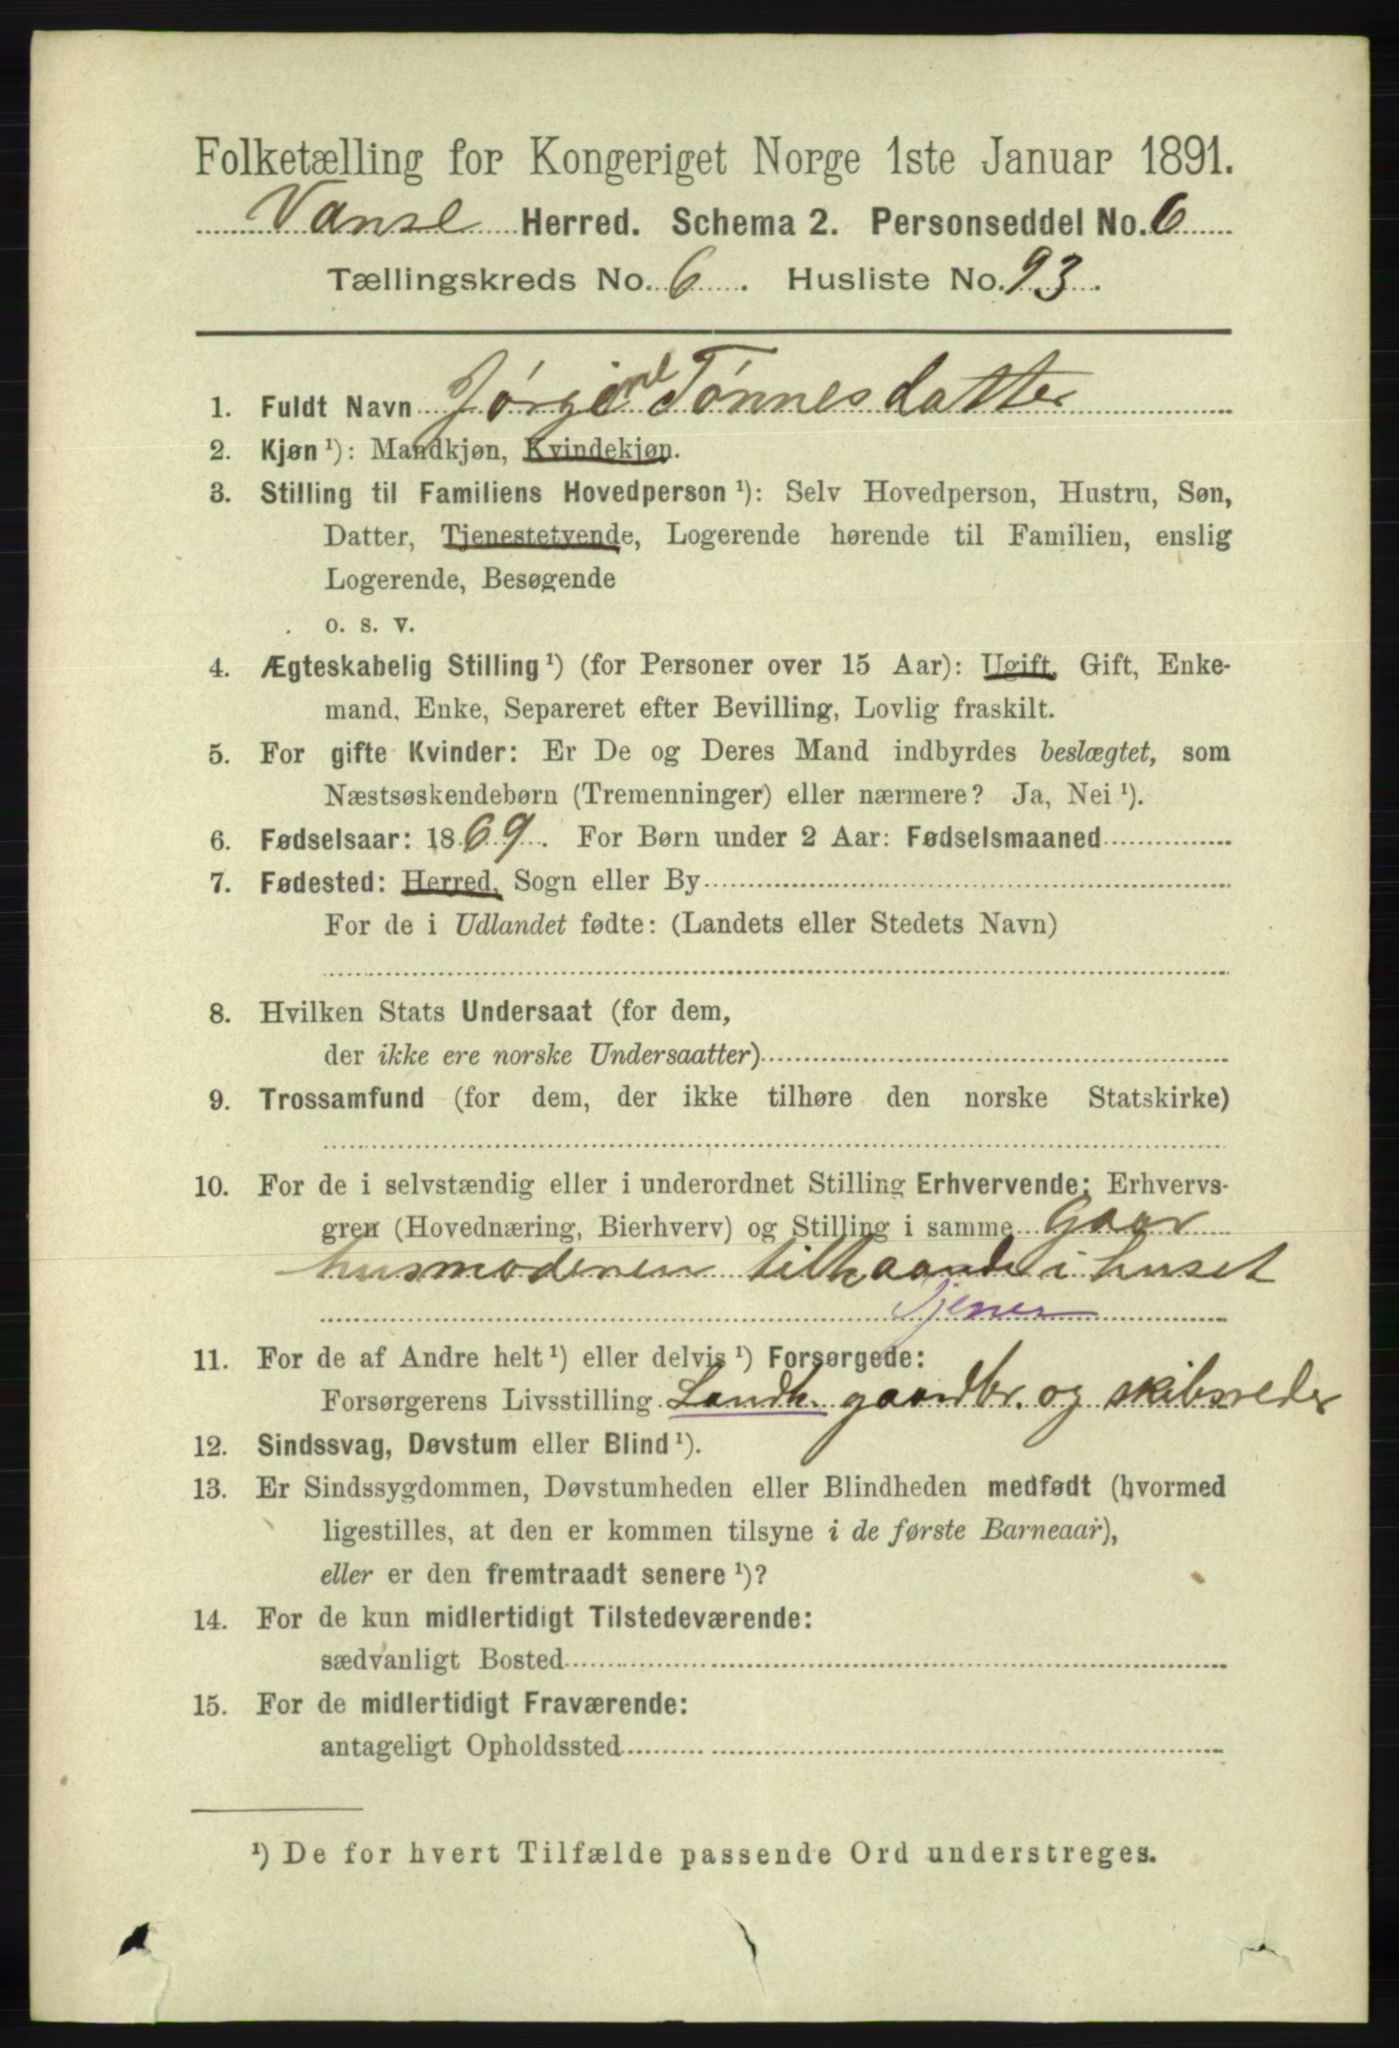 Folketælling for Kongeriget Norge 1ste Januar 1891.
Vanse Herred. Schema 2. Personseddel No. 6
Tællingskreds No. 6. Husliste No. 93.
1. Fuldt Navn Jørgine Tønnesdatter
2. Kjøn ¹): Mandkjøn, Kvindekjøn.
3. Stilling til Familiens Hovedperson ¹): Selv Hovedperson, Hustru, Søn,
Datter, Tjenestetyende, Logerende hørende til Familien, enslig
Logerende, Besøgende
o. s. v.
4. Ægteskabelig Stilling ¹) (for Personer over 15 Aar): Ugift, Gift, Enke-
mand, Enke, Separeret efter Bevilling, Lovlig fraskilt.
5. For gifte Kvinder: Er De og Deres Mand indbyrdes beslægtet, som
Næstsøskendebørn (Tremenninger) eller nærmere? Ja, Nei ¹).
6. Fødselsaar: 1869. For Børn under 2 Aar: Fødselsmaaned
7. Fødested: Herred, Sogn eller By
For de i Udlandet fødte: (Landets eller Stedets Navn)
8. Hvilken Stats Undersaat (for dem,
der ikke ere norske Undersaatter)
9. Trossamfund (for dem, der ikke tilhøre den norske Statskirke)
10. For de i selvstændig eller i underordnet Stilling Erhvervende: Erhvervs-
gren (Hovednæring, Bierhverv) og Stilling i samme Gaar
husmoderen tilhaande i huset
Tjener
11. For de af Andre helt ¹) eller delvis ¹) Forsørgede:
Forsørgerens Livsstilling Landh. gaardbr. og skibsreder
12. Sindssvag, Døvstum eller Blind ¹).
13. Er Sindssygdommen, Døvstumheden eller Blindheden medfødt (hvormed
ligestilles, at den er kommen tilsyne i de første Barneaar),
eller er den fremtraadt senere ¹)?
14. For de kun midlertidigt Tilstedeværende:
sædvanligt Bosted
15. For de midlertidigt Fraværende:
antageligt Opholdssted
¹) De for hvert Tilfælde passende Ord understreges.